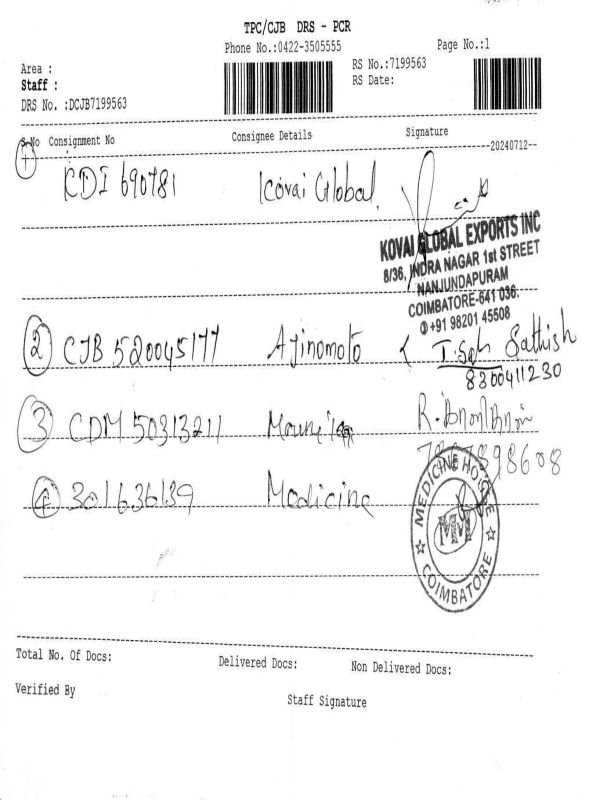 TPC/CJB DRS - PCR
Phone No.:0422-3505555
Page No.:1
Area :
Staff :
DRS No. :DCJB7199563
RS No.:7199563
RS Date:
S.No Consignment No Consignee Details Signature
20240712
1 CDI 690781 Kovai Global
KOVAI GLOBAL EXPORTS INC
8/36, INDRA NAGAR 1st STREET
NANJUNDAPURAM
COIMBATORE-641 036.
✆+91 98201 45508
2 CJB 520045177 Ajinomoto Sathish
8300411230
3 CDM 50313211
4 301636139 Medicine
MEDICINE HOUSE
MM
COIMBATORE
Total No. Of Docs: Delivered Docs: Non Delivered Docs:
Verified By
Staff Signature